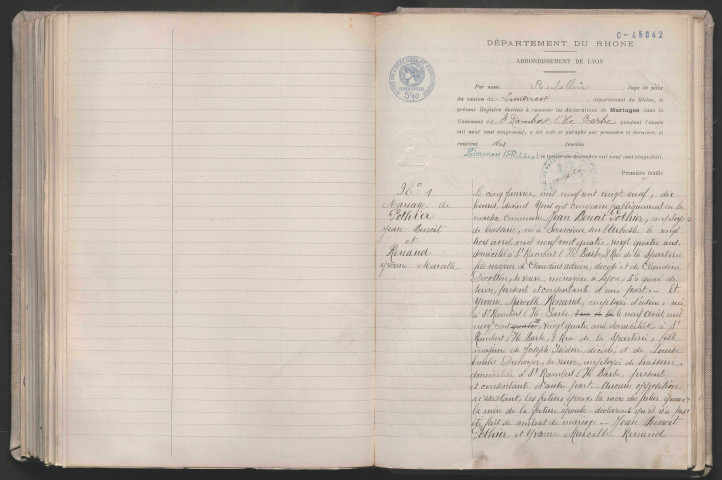 C-46042
DÉPARTEMENT DU RHÔNE
ARRONDISSEMENT DE LYON
Par nous, Juge de paix
du canton de Limonest, département du Rhône, le
présent Registre destiné à recevoir les déclarations de Mariages dans la
Commune de St Rambert l'Ile Barbe pendant l'année
mil neuf cent vingt-neuf, a été coté et paraphé par première et dernière, et
contient dix feuilles
Limonest (Rhône), le décembre mil neuf cent vingt-huit.
Première feuille
No 1
Mariage de
Pothier
Jean Benoît
et
Renand
Yvonne Marcelle
Le cinq janvier, mil neuf cent vingt neuf, dix
heures, devant Nous ont comparu publiquement en la
maison commune Jean Benoit Pothier, employé
de brasserie, né à Sourcieux sur l'Arbresle le vingt
trois avril mil neuf cent quatre, vingt quatre ans
domicilié à St Rambert l'Ile Barbe, 8 Rue de la Sparterie
fils majeur de Claudius, décédé et de Claudine
sa veuve, ménagère à Lyon, 46 quai de
Serin, présente et consentante d'une part. - Et
Yvonne Marcelle Renand, employée d'usine, née
à St Rambert l'Ile Barbe le 6 neuf août mil
neuf cent quatre, vingt quatre ans domiciliée à St
Rambert l'Ile Barbe, 8 Rue de la Sparterie, fille
majeure de Joseph, décédé, et de Louise
sa veuve, employée de brasserie,
domiciliée à St Rambert l'Ile Barbe, présente
et consentante d'autre part. - Aucune opposition
n'existant, les futurs époux, la mère du futur époux
la mère de la future épouse déclarent qu'il n'a pas
été fait de contrat de mariage. - Jean Benoit
Pothier et Yvonne Marcelle Renand